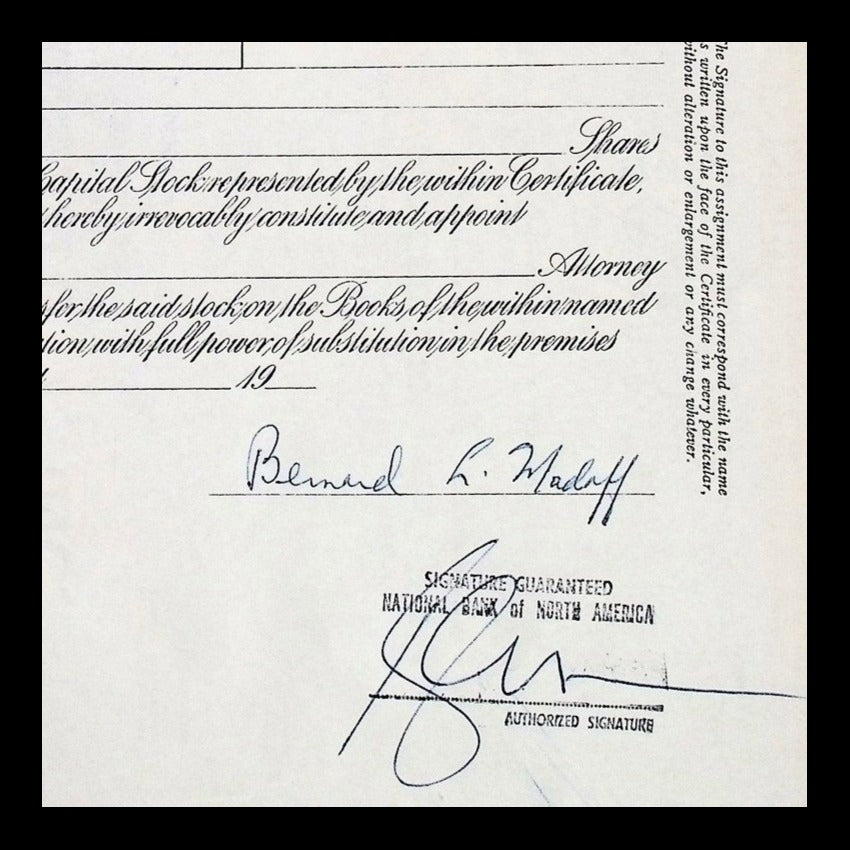 Shares
Capital Stock represented by the within Certificate,
hereby irrevocably constitute and appoint
Attorney
sfer the said stock on the Books of the within named
tion with full power of substitution in the premises
19
Bernard L. Madoff
SIGNATURE GUARANTEED
NATIONAL BANK of NORTH AMERICA
AUTHORIZED SIGNATURE
The Signature to this assignment must correspond with the name
s written upon the face of the Certificate in every particular,
without alteration or enlargement or any change whatever.